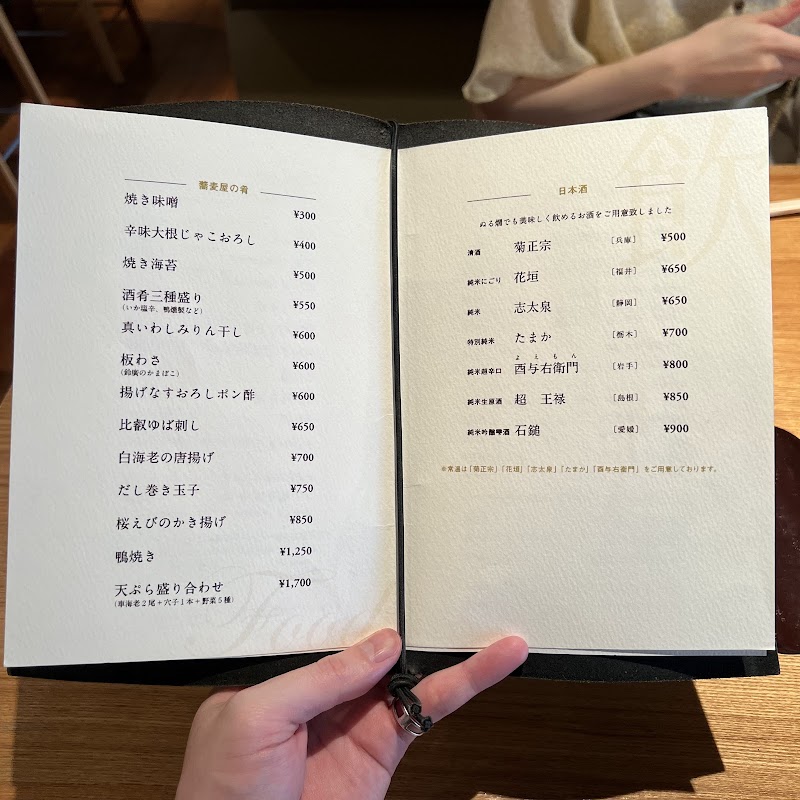 蕎麦屋の肴
焼き味噌 ¥300
辛味大根じゃこおろし ¥400
焼き海苔 ¥500
酒肴三種盛り ¥550
(いか塩辛、鴨燻製など)
真いわしみりん干し ¥600
板わさ ¥600
(鈴廣のかまぼこ)
揚げなすおろしポン酢 ¥600
比叡ゆば刺し ¥650
白海老の唐揚げ ¥700
だし巻き玉子 ¥750
桜えびのかき揚げ ¥850
鴨焼き ¥1,250
天ぷら盛り合わせ ¥1,700
(車海老2尾+穴子1本+野菜5種)
Food
飲
日本酒
ぬる燗でも美味しく飲めるお酒をご用意致しました
清酒 菊正宗 [兵庫] ¥500
純米にごり 花垣 [福井] ¥650
純米 志太泉 [静岡] ¥650
特別純米 たまか [栃木] ¥700
よえもん
純米超辛口 酉与右衛門 [岩手] ¥800
純米生原酒 超 王禄 [島根] ¥850
純米吟醸雫酒 石鎚 [愛媛] ¥900
※常温は「菊正宗」「花垣」「志太泉」「たまか」「酉与右衛門」をご用意しております。